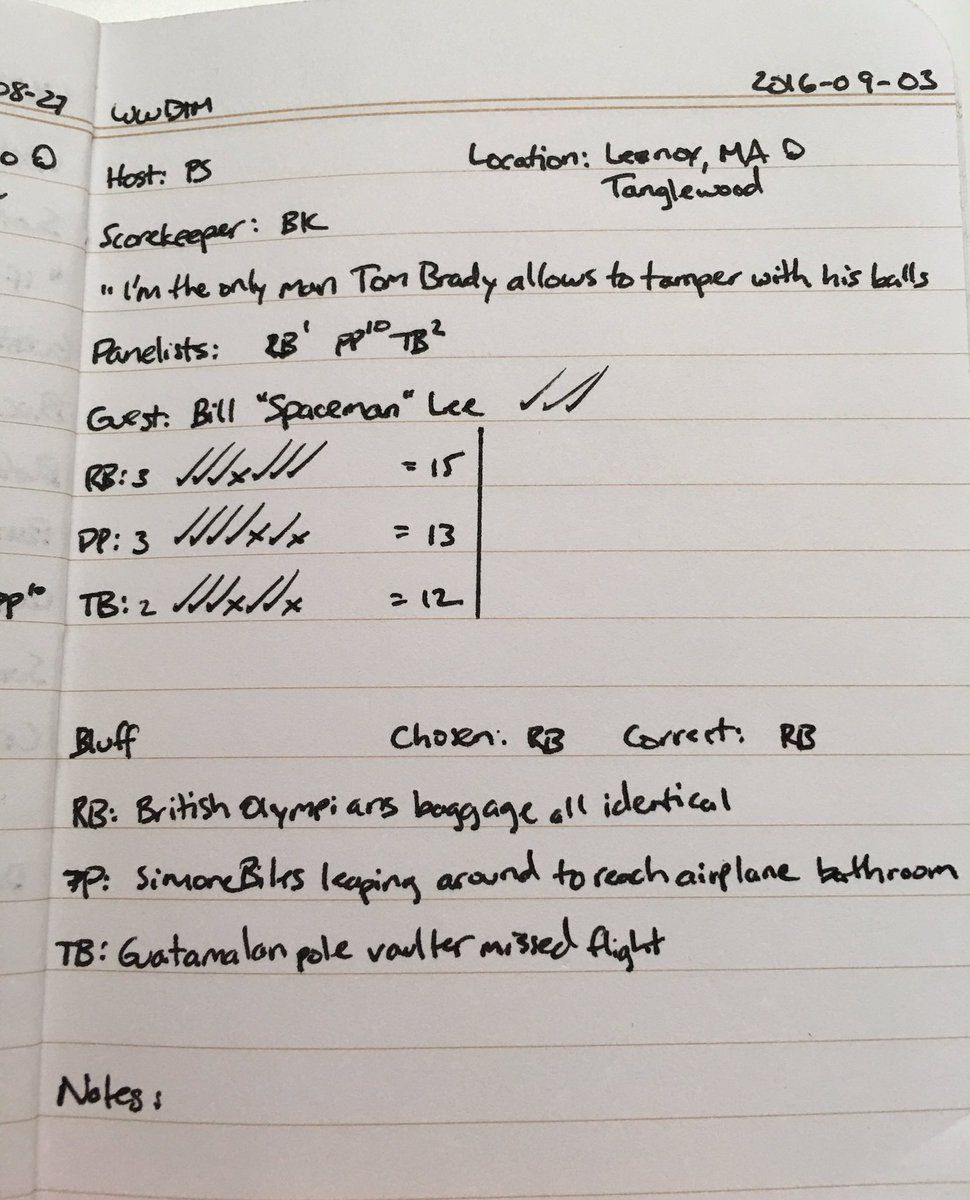 08-27
WWDTM 2016-09-03
Host: PS Location: Leenox, MA
Tanglewood
Scorekeeper: BK
"I'm the only man Tom Brady allows to tamper with his balls
Panelists: RB¹ PP¹⁰ TB²
Guest: Bill "Spaceman" Lee ✓✓✓
RB: 3 ✓✓✓x✓✓✓ = 15
PP: 3 ✓✓✓✓x✓x = 13
PP¹⁰
TB: 2 ✓✓✓x✓✓x = 12
Bluff Chosen: RB Correct: RB
RB: British Olympians baggage all identical
PP: Simone Biles leaping around to reach airplane bathroom
TB: Guatamalan pole vaulter missed flight
Notes: